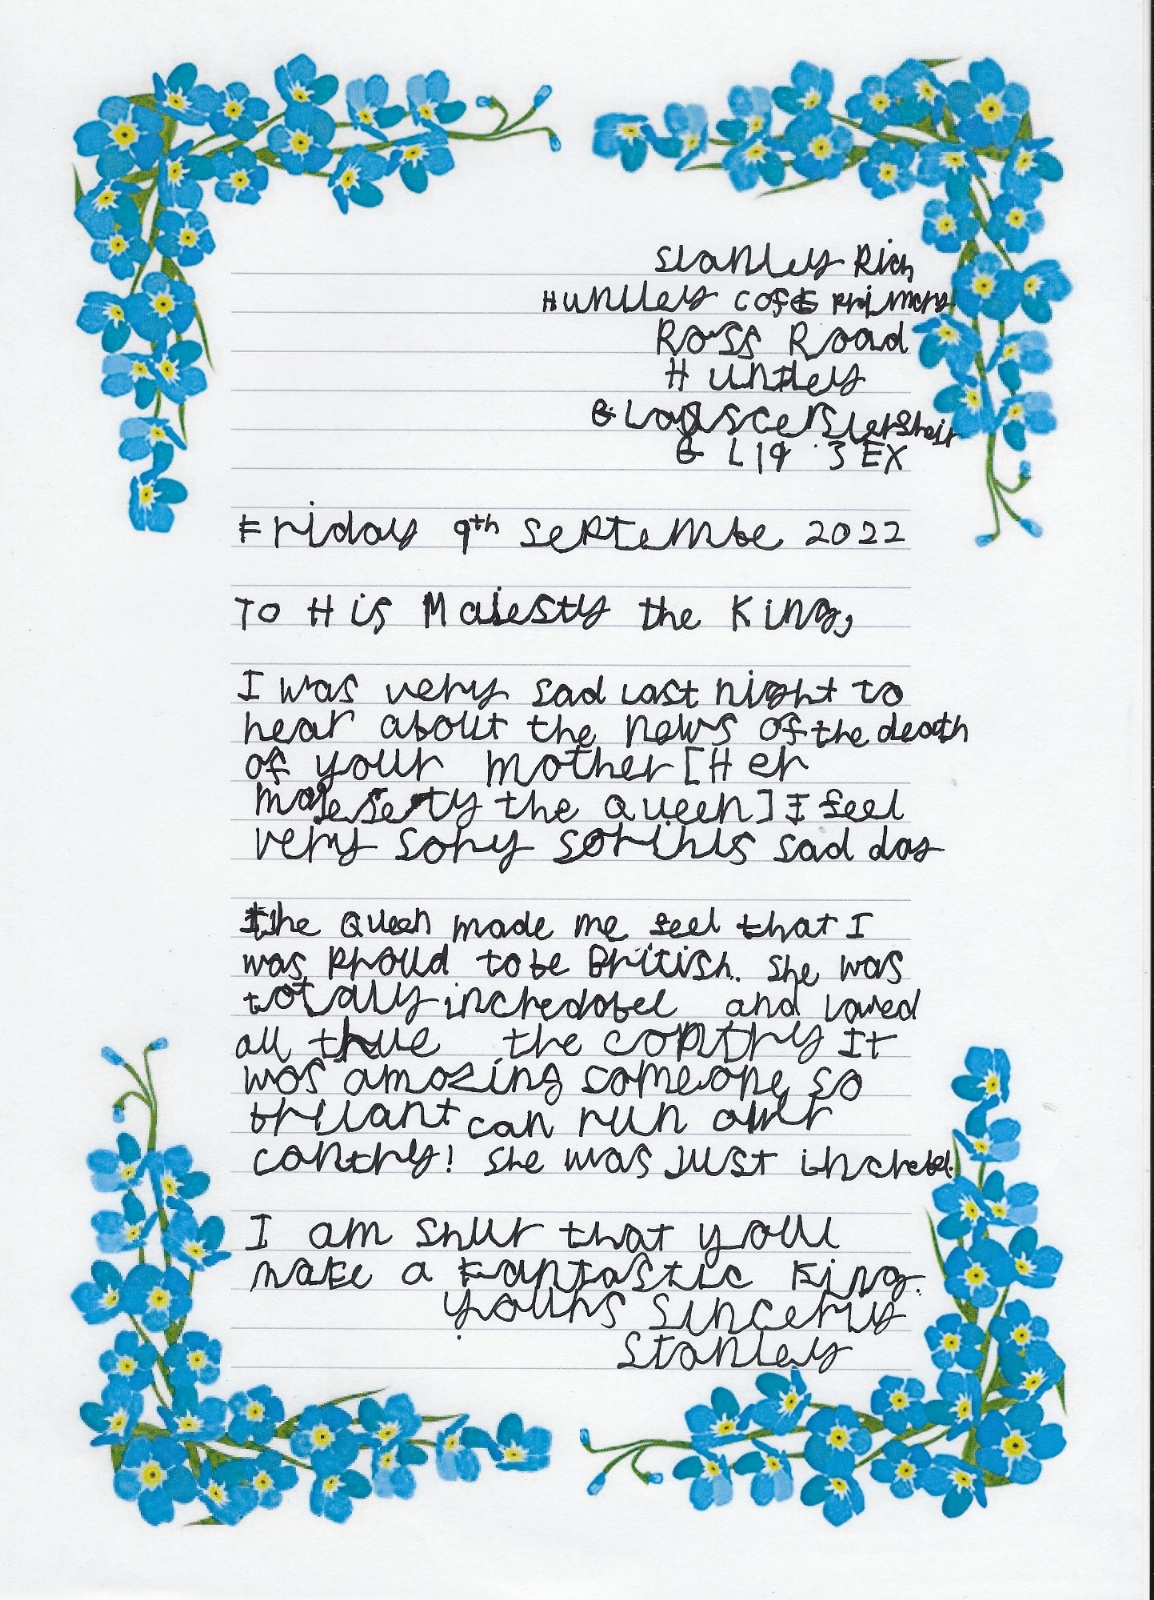 Stanley Rich
Huntley CofE Primary
Ross Road
Huntley
GL19 3EX
Friday 9th Septembe 2022
To His Majesty the King,
I was very sad last night to
hear about the news of the death
of your mother [Her
majesesty the queen] I feel
very sory sorthis sad day
the Queen made me feel that I
was proud to be British. She was
totally incredobel and loved
all the contry It
was amazing someone so
brillant can run
contry! She was just
I am shur that youll
make a Fantastic King.
yours Sincerly
Stanley